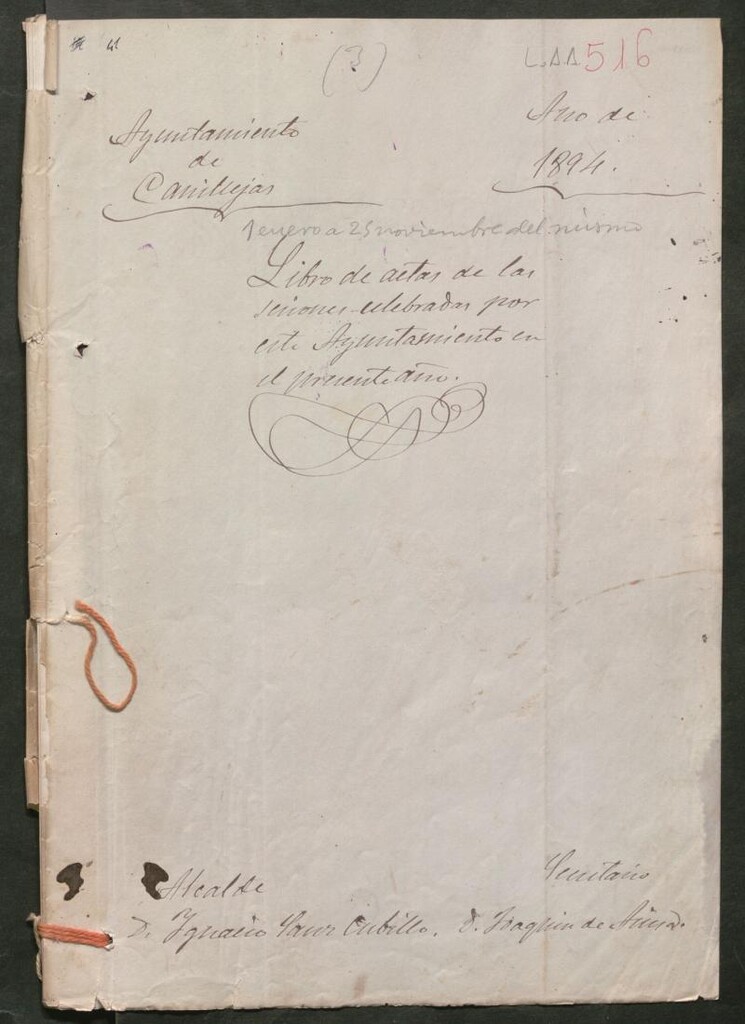 (3)
L.AA 516
Ayuntamiento
de
Canillejas
Año de
1894.
1 enero a 25 noviembre del mismo
Libro de actas de las
sesiones celebradas por
este Ayuntamiento en
el presente año.
Alcalde
D. Ignacio Sanz Cubillo.
Secretario
D. Joaquin de